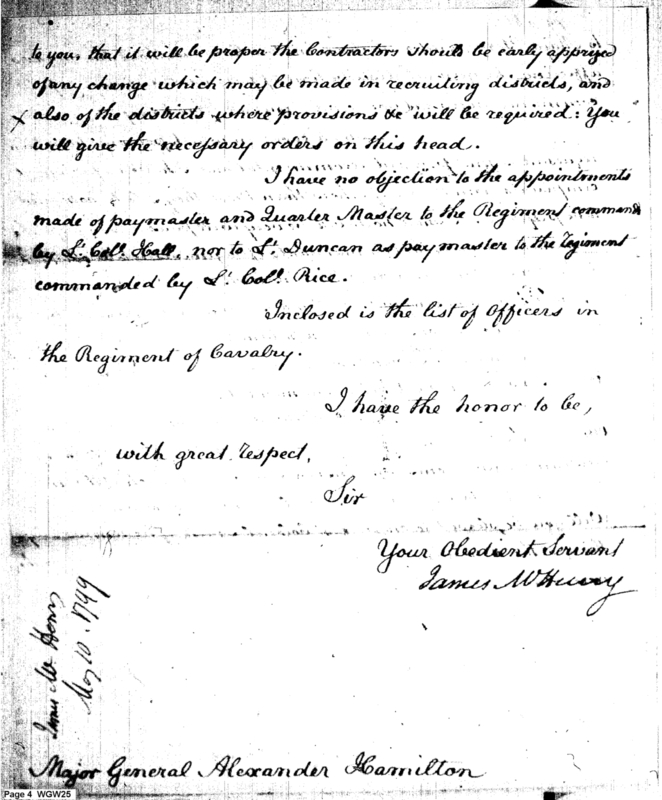 to you, that it will be proper the Contractors should be early apprized
of any change which may be made in recruiting districts, and
× also of the districts where provisions &c will be required: You
will give the necessary orders on this head.
I have no objection to the appointments
made of paymaster and Quarter Master to the Regiment command
by Lt. Coll. Hall, nor to Lt. Duncan as paymaster to the regiment
commanded by Lt. Coll. Rice.
Inclosed is the list of Officers in
the Regiment of Cavalry.
I have the honor to be,
with great respect,
Sir
Your Obedient Servant
James McHenry
James Mc Henry
May 10. 1799
Major General Alexander Hamilton
Page 4 WGW25